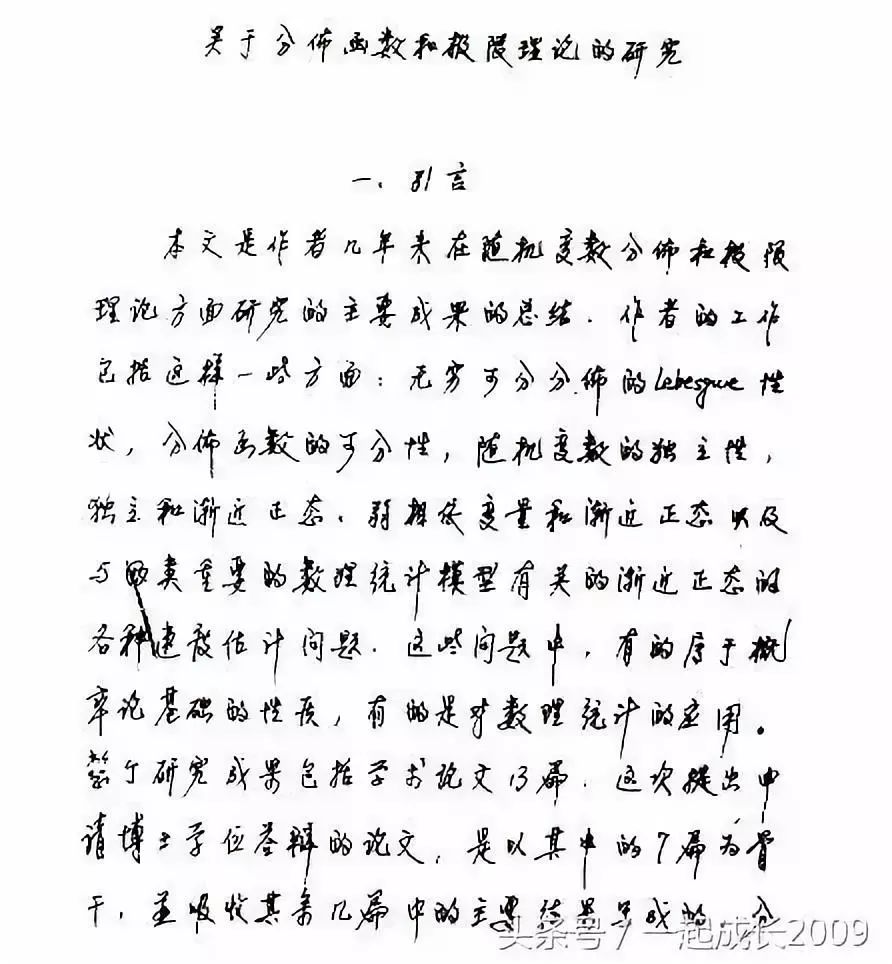 关于分佈函数和极限理论的研究
一、引言
本文是作者几年来在随机变数分佈和极限
理论方面研究的主要成果的总结.作者的工作
包括这样一些方面：无穷可分分佈的Lebesgue性
状，分佈函数的可分性，随机变数的独立性，
独立和渐近正态、弱相依变量和渐近正态以及
与四类重要的数理统计模型有关的渐近正态的
各种速度估计问题.这些问题中，有的属于概
率论基础的性质，有的是对数理统计的应用。
整个研究成果包括学术论文13篇.这次提出申
请博士学位答辩的论文，是以其中的7篇为骨
干，並吸收其余几篇中的主要结果写成的.分
头条号 / 一起成长2009